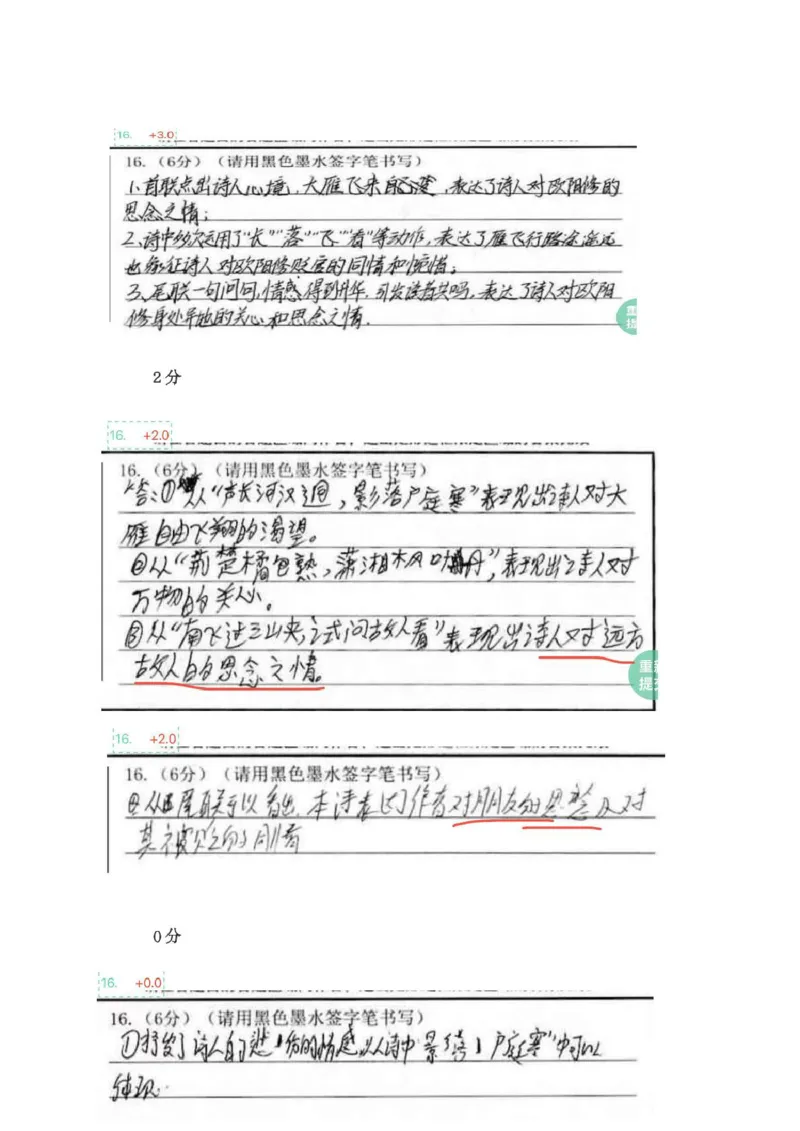 16. +3.0
16.（6分）（请用黑色墨水签字笔书写）
1.首联点出诗人心境,大雁飞来自,表达了诗人对欧阳修的
思念之情；
2.诗中多次运用了"长""落""飞""看"等动作,表达了雁飞行路途遥远
也象征诗人对欧阳修贬官的同情和惋惜；
3.尾联一句问句,情感得到升华,引发读者共鸣,表达了诗人对欧阳
修身处异地的关心和思念之情.
2分
16. +2.0
16.（6分）（请用黑色墨水签字笔书写）
答:①从"声长河汉迥,影落户庭寒"表现出诗人对大
雁自由飞翔的渴望。
②从"荆楚橘包熟,潇湘枫叶丹",表现出诗人对
万物的关心。
③从"南飞过三山来,试问故人看"表现出诗人对远方
故人的思念之情。
重新
提交
16. +2.0
16.（6分）（请用黑色墨水签字笔书写）
从尾联可以看出,本诗表达了作者对朋友的思念及对
其被贬的同情
0分
16. +0.0
16.（6分）（请用黑色墨水签字笔书写）
①抒发了诗人的悲伤的情感,从诗中影落户庭寒"中可以
体现.